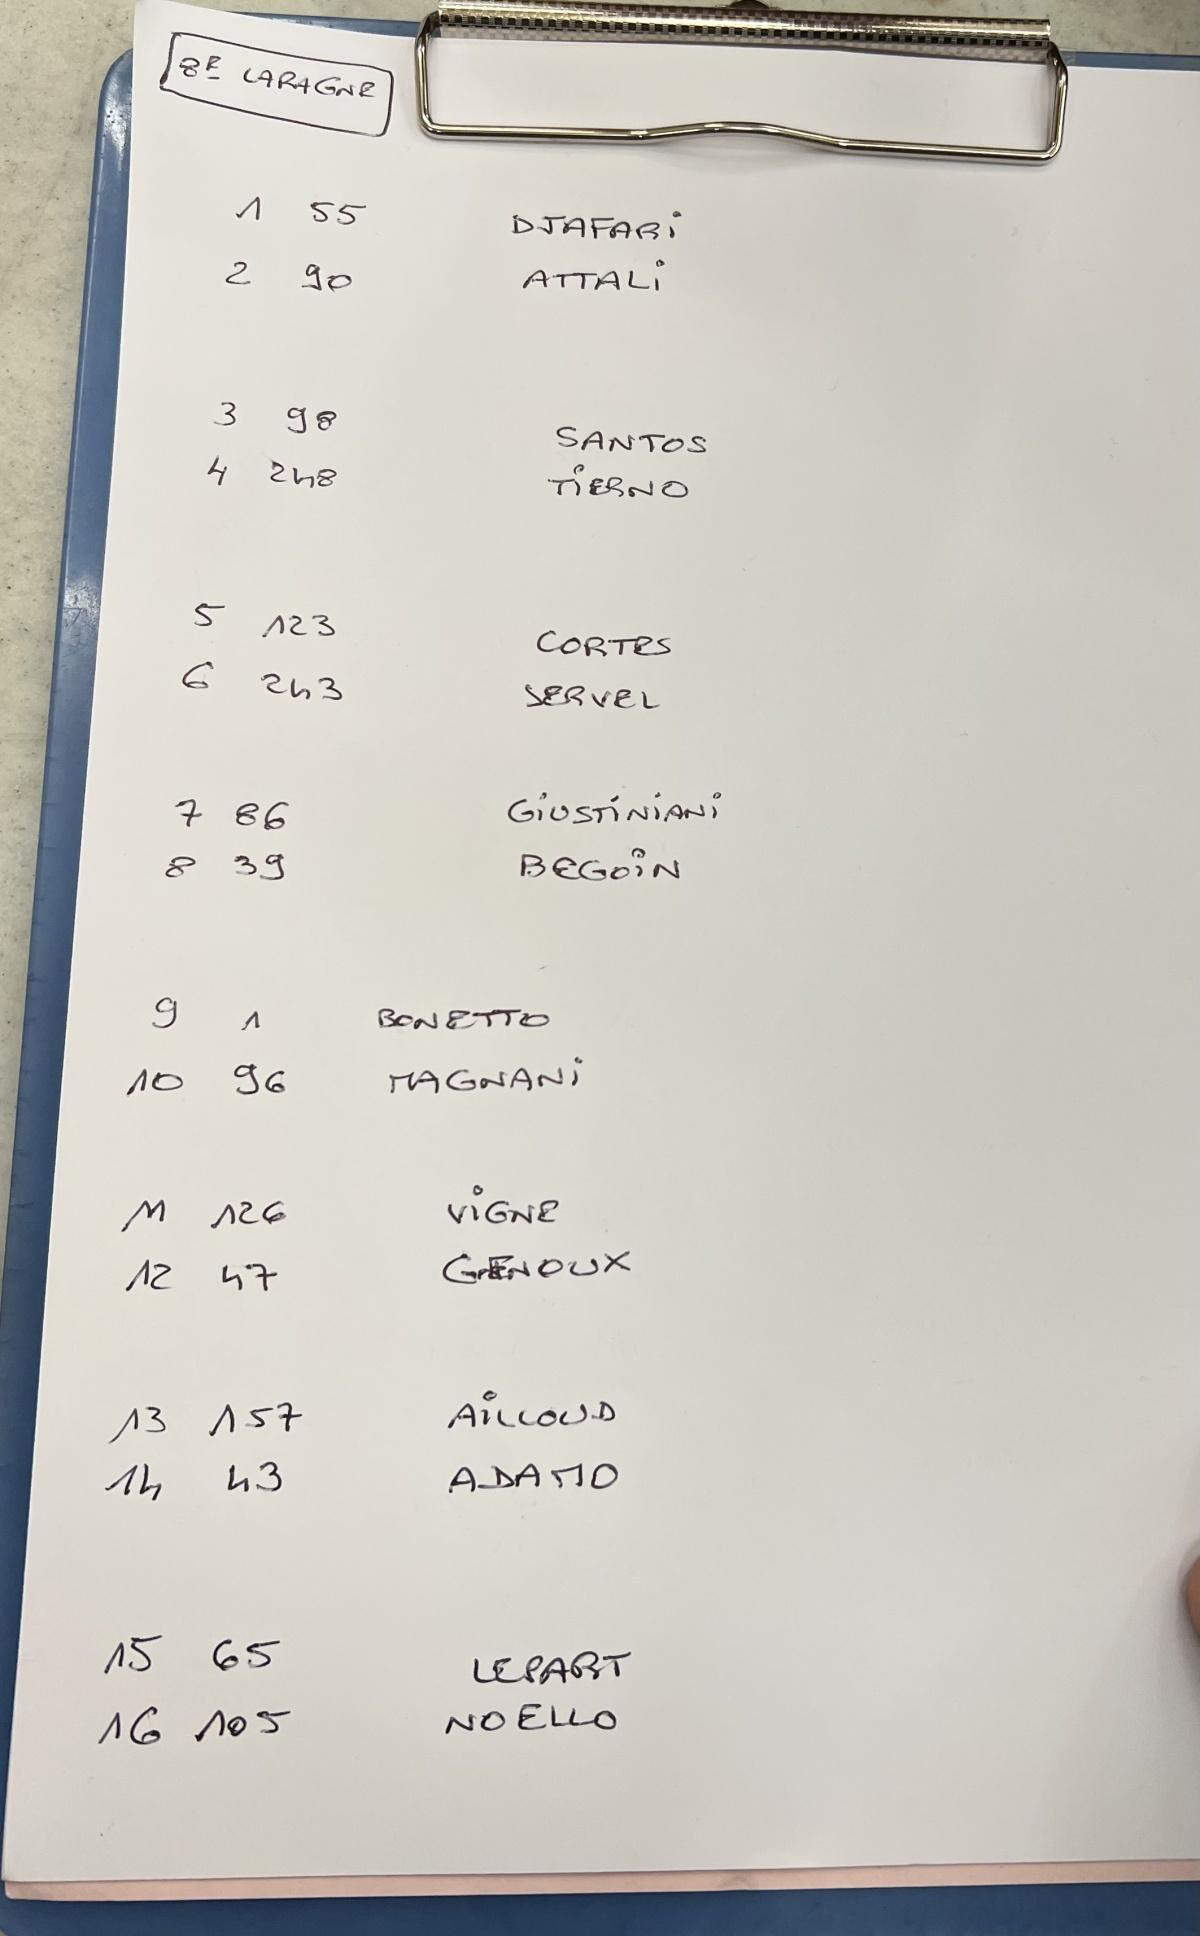 8E LARAGNE
1 55 DJAFARi
2 90 ATTALi
3 98 SANTOS
4 248 TiERNO
5 123 CORTES
6 243 SERVEL
7 86 GiUSTiNiANi
8 39 BEGOiN
9 1 BONETTO
10 96 MAGNANi
11 126 ViGNE
12 47 GENOUX
13 157 AiLLOUD
14 43 ADAMO
15 65 LEPART
16 105 NOELLO